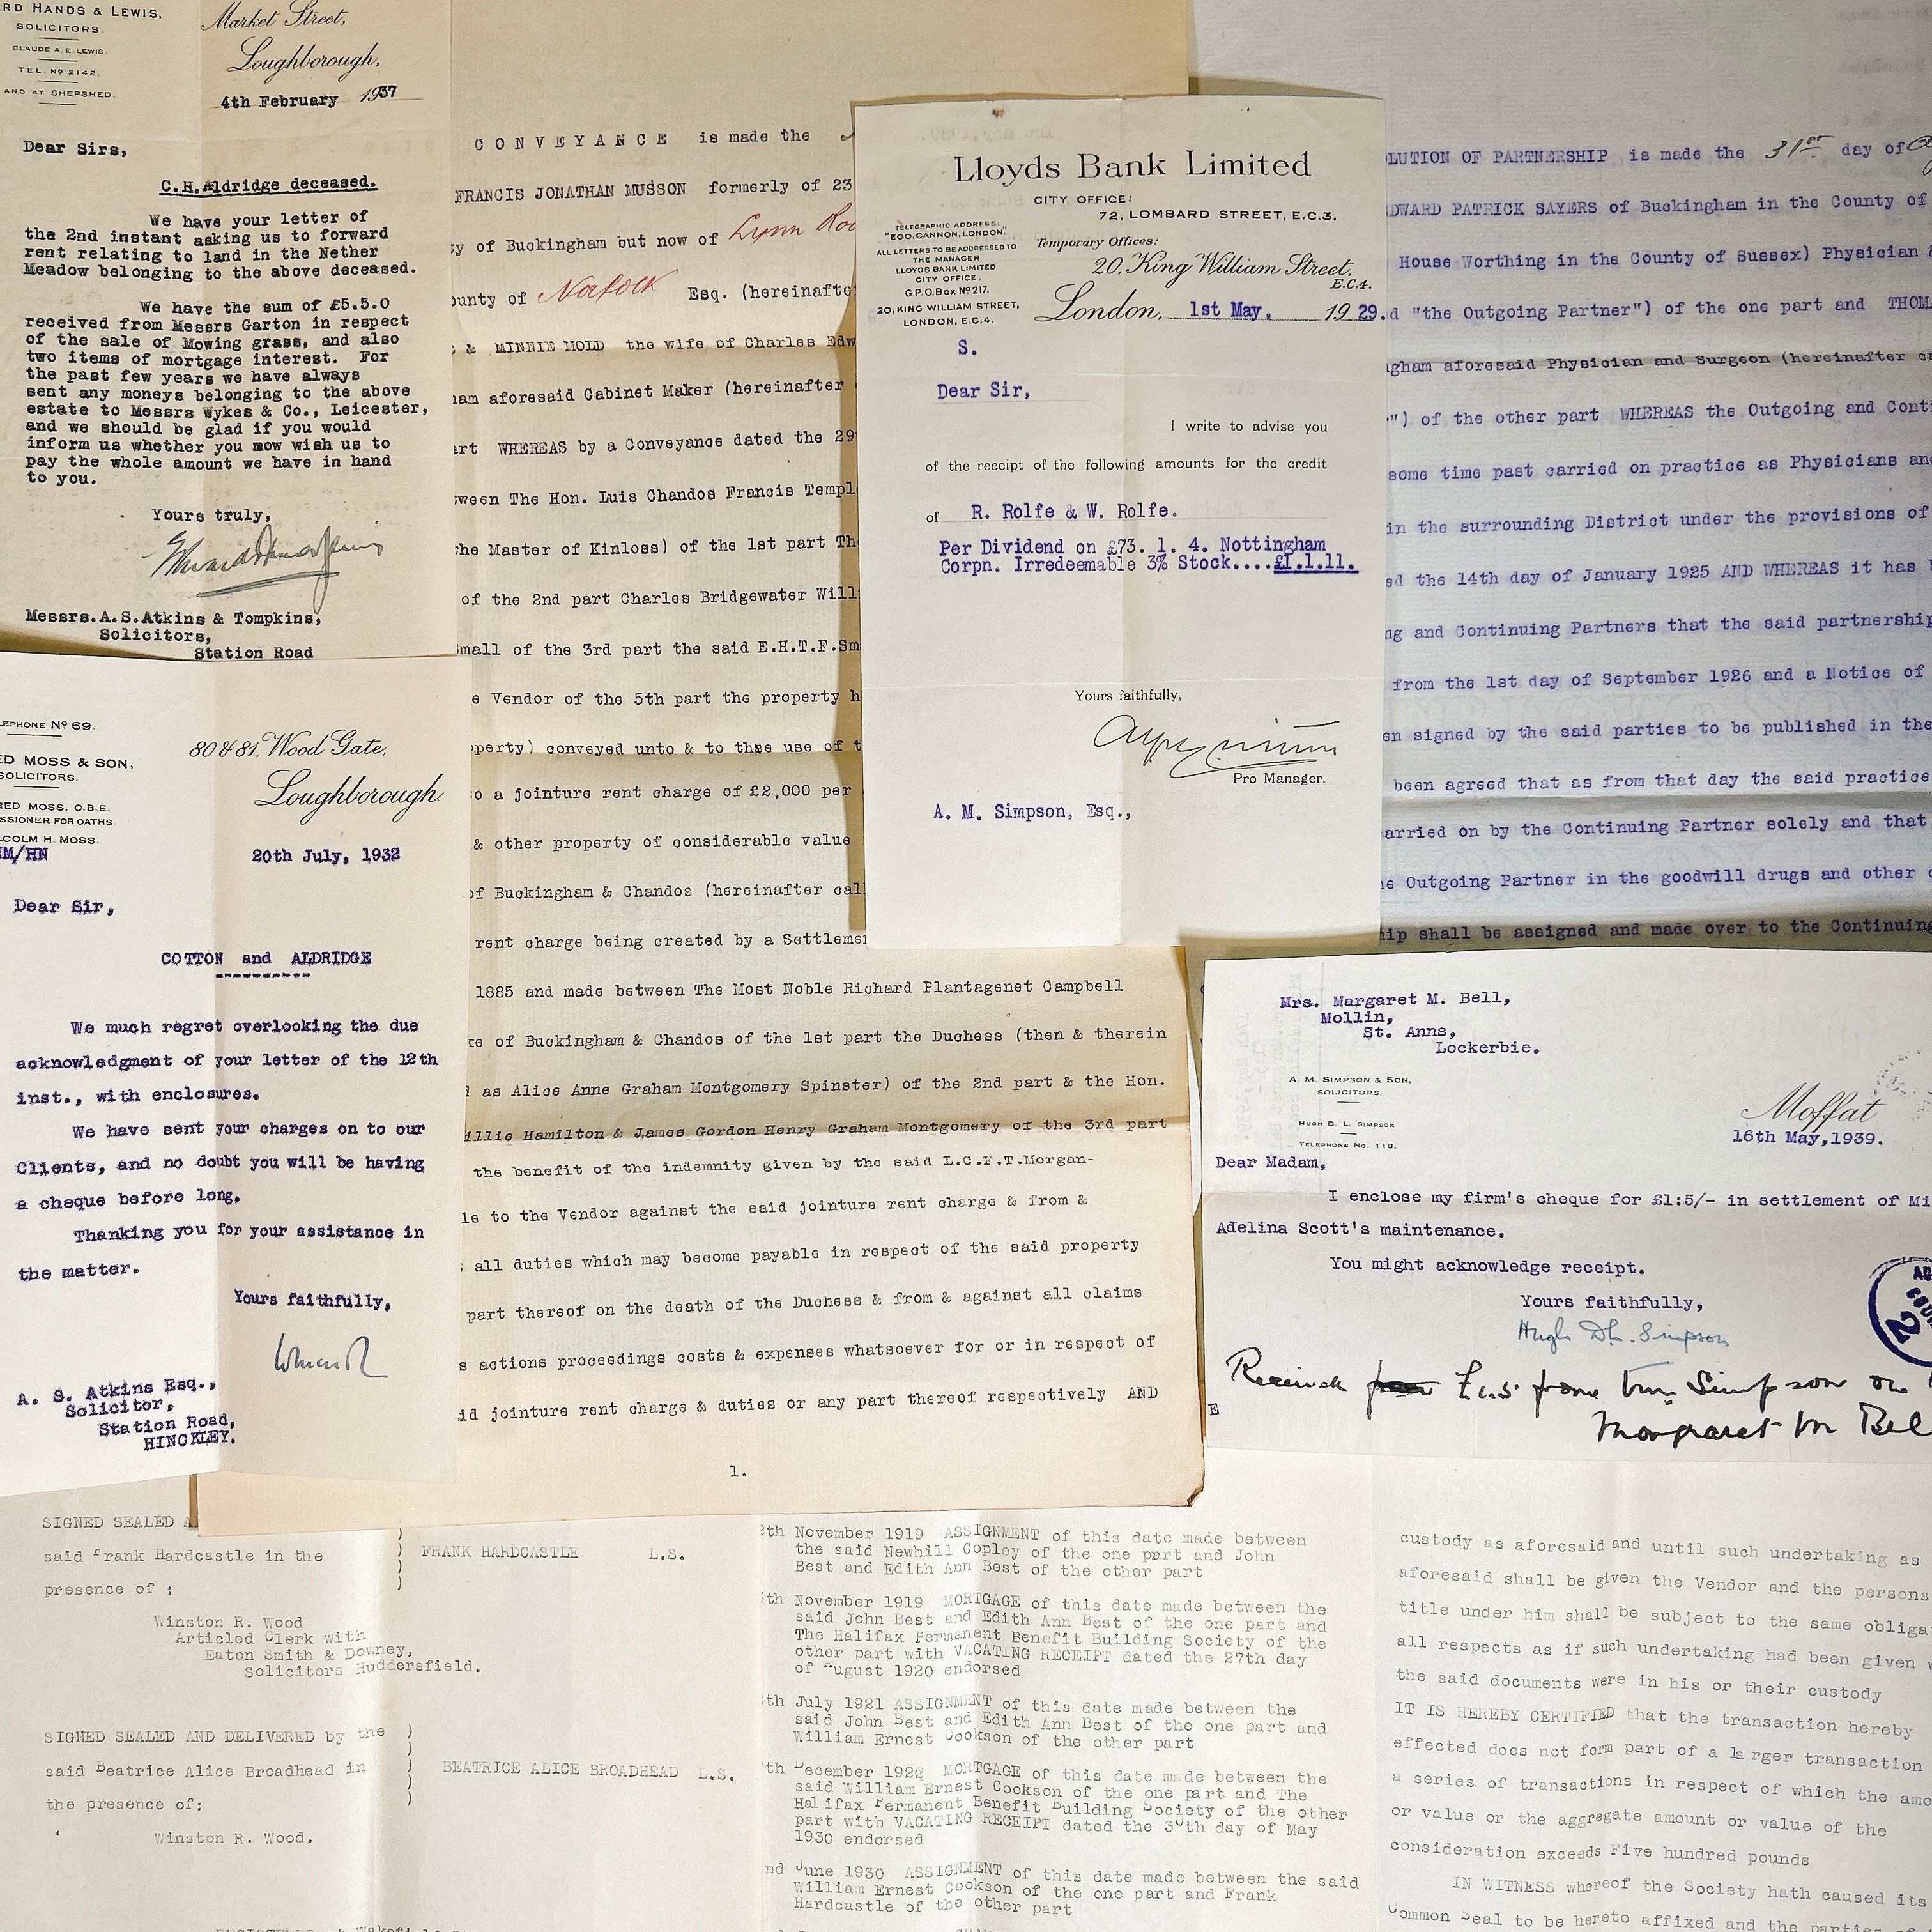 RD HANDS & LEWIS,
SOLICITORS.
CLAUDE A. E. LEWIS.
TEL. Nº 2142.
AND AT SHEPSHED.
Market Street,
Loughborough,
4th February 1937
Dear Sirs,
C.H.Aldridge deceased.
We have your letter of
the 2nd instant asking us to forward
rent relating to land in the Nether
Meadow belonging to the above deceased.
We have the sum of £5.5.0
received from Messrs Garton in respect
of the sale of Mowing grass, and also
two items of mortgage interest. For
the past few years we have always
sent any moneys belonging to the above
estate to Messrs Wykes & Co., Leicester,
and we should be glad if you would
inform us whether you now wish us to
pay the whole amount we have in hand
to you.
Yours truly,
Messrs.A.S.Atkins & Tompkins,
Solicitors,
Station Road
LEPHONE Nº 69.
ED MOSS & SON,
SOLICITORS.
RED MOSS, C.B.E.
SSIONER FOR OATHS
LCOLM H. MOSS.
M/HN
80 & 81, Wood Gate,
Loughborough.
20th July, 1932
Dear Sir,
COTTON and ALDRIDGE
We much regret overlooking the due
acknowledgment of your letter of the 12th
inst., with enclosures.
We have sent your charges on to our
Clients, and no doubt you will be having
a cheque before long.
Thanking you for your assistance in
the matter.
Yours faithfully,
A. S. Atkins Esq.,
Solicitor,
Station Road,
HINCKLEY.
CONVEYANCE is made the
FRANCIS JONATHAN MUSSON formerly of 23
ty of Buckingham but now of Lynn Roa
ounty of Norfolk Esq. (hereinafte
& MINNIE MOLD the wife of Charles Edw
ham aforesaid Cabinet Maker (hereinafter
art WHEREAS by a Conveyance dated the 29
tween The Hon. Luis Chandos Francis Templ
the Master of Kinloss) of the 1st part Th
of the 2nd part Charles Bridgewater Will
Small of the 3rd part the said E.H.T.F.Sm
e Vendor of the 5th part the property h
operty) conveyed unto & to the use of t
to a jointure rent charge of £2,000 per
& other property of considerable value
of Buckingham & Chandos (hereinafter cal
rent charge being created by a Settlemen
1885 and made between The Most Noble Richard Plantagenet Campbell
ke of Buckingham & Chandos of the 1st part the Duchess (then & therein
d as Alice Anne Graham Montgomery Spinster) of the 2nd part & the Hon.
illie Hamilton & James Gordon Henry Graham Montgomery of the 3rd part
the benefit of the indemnity given by the said L.C.F.T.Morgan-
le to the Vendor against the said jointure rent charge & from &
all duties which may become payable in respect of the said property
part thereof on the death of the Duchess & from & against all claims
s actions proceedings costs & expenses whatsoever for or in respect of
id jointure rent charge & duties or any part thereof respectively AND
1.
Lloyds Bank Limited
CITY OFFICE:
72, LOMBARD STREET, E.C.3.
TELEGRAPHIC ADDRESS,
"EGO, CANNON, LONDON."
ALL LETTERS TO BE ADDRESSED TO
THE MANAGER
LLOYDS BANK LIMITED
CITY OFFICE,
G.P.O. Box Nº 217,
20, KING WILLIAM STREET,
LONDON, E.C.4.
Temporary Offices:
20, King William Street,
E.C.4.
London, 1st May, 1929.
S.
Dear Sir,
I write to advise you
of the receipt of the following amounts for the credit
of R. Rolfe & W. Rolfe.
Per Dividend on £73. 1. 4. Nottingham
Corpn. Irredeemable 3% Stock....£1.1.11.
Yours faithfully,
Pro Manager.
A. M. Simpson, Esq.,
OLUTION OF PARTNERSHIP is made the 31st day of
DWARD PATRICK SAYERS of Buckingham in the County of
House Worthing in the County of Sussex) Physician &
d "the Outgoing Partner") of the one part and THOM
ngham aforesaid Physician and Surgeon (hereinafter ca
r") of the other part WHEREAS the Outgoing and Cont
some time past carried on practice as Physicians and
in the surrounding District under the provisions of
ed the 14th day of January 1925 AND WHEREAS it has
ng and Continuing Partners that the said partnership
from the 1st day of September 1926 and a Notice of
en signed by the said parties to be published in the
been agreed that as from that day the said practice
arried on by the Continuing Partner solely and that
e Outgoing Partner in the goodwill drugs and other
hip shall be assigned and made over to the Continuing
Mrs. Margaret M. Bell,
Mollin,
St. Anns,
Lockerbie.
A. M. SIMPSON & SON,
SOLICITORS.
HUGH D. L. SIMPSON
TELEPHONE NO. 118.
Moffat
16th May,1939.
Dear Madam,
I enclose my firm's cheque for £1:5/- in settlement of Mi
Adelina Scott's maintenance.
You might acknowledge receipt.
Yours faithfully,
Hugh D.L. Simpson
Received £1.5 from Mr. Simpson on
Margaret M Bel
E
SIGNED SEALED A
said Frank Hardcastle in the
presence of :
FRANK HARDCASTLE L.S.
Winston R. Wood
Articled Clerk with
Eaton Smith & Downey,
Solicitors Huddersfield.
SIGNED SEALED AND DELIVERED by the
said Beatrice Alice Broadhead in
the presence of:
BEATRICE ALICE BROADHEAD L.S.
Winston R. Wood.
2th November 1919 ASSIGNMENT of this date made between
the said Newhill Copley of the one part and John
Best and Edith Ann Best of the other part
5th November 1919 MORTGAGE of this date made between the
said John Best and Edith Ann Best of the one part and
The Halifax Permanent Benefit Building Society of the
other part with VACATING RECEIPT dated the 27th day
of August 1920 endorsed
2th July 1921 ASSIGNMENT of this date made between the
said John Best and Edith Ann Best of the one part and
William Ernest Cookson of the other part
7th December 1922 MORTGAGE of this date made between the
said William Ernest Cookson of the one part and The
Halifax Permanent Benefit Building Society of the other
part with VACATING RECEIPT dated the 30th day of May
1930 endorsed
nd June 1930 ASSIGNMENT of this date made between the said
William Ernest Cookson of the one part and Frank
Hardcastle of the other part
custody as aforesaid and until such undertaking as
aforesaid shall be given the Vendor and the persons
title under him shall be subject to the same obliga
all respects as if such undertaking had been given
the said documents were in his or their custody
IT IS HEREBY CERTIFIED that the transaction hereby
effected does not form part of a larger transaction
a series of transactions in respect of which the amo
or value or the aggregate amount or value of the
consideration exceeds Five hundred pounds
IN WITNESS whereof the Society hath caused its
Common Seal to be hereto affixed and the parties